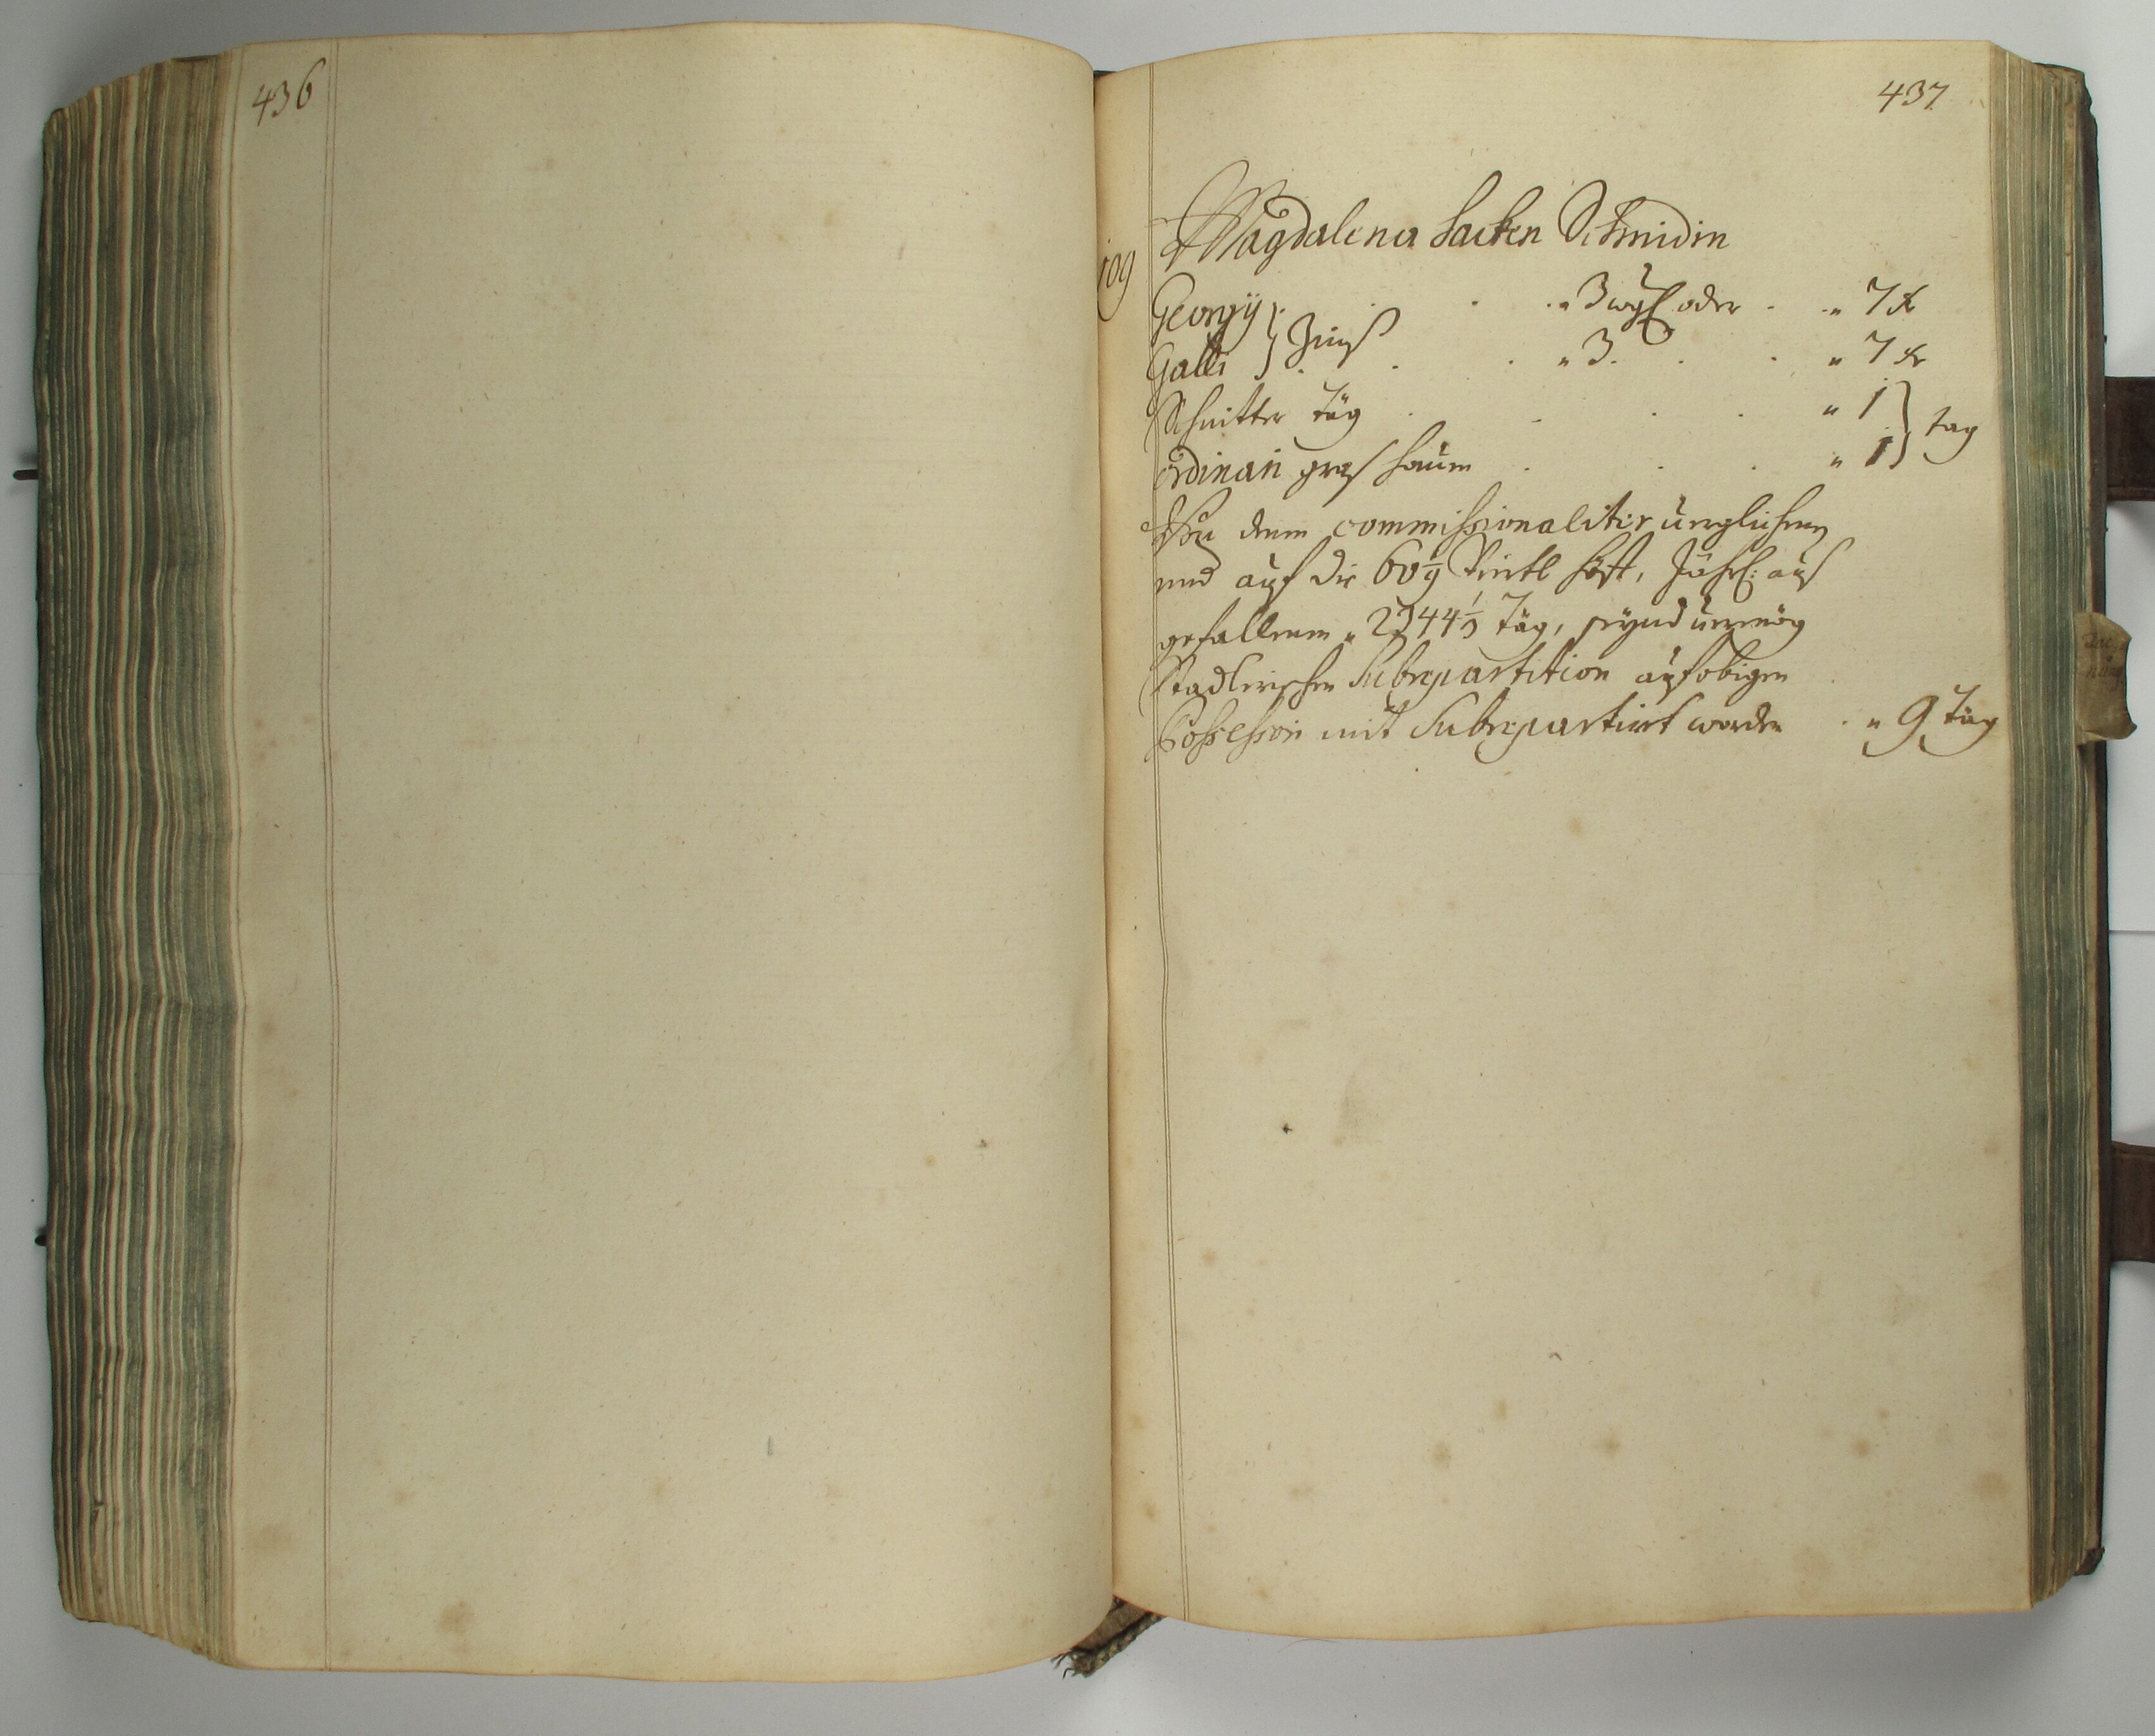 436
437
109
Magdalena Hacken Schmidin
Georgÿ } Zinß . . . „ 3 wgl oder . „ 7 xr
Galli . . . „ 3. . . „ 7 xr
Schnitter täg . . . . „ 1 } tag
ordinari graß hauen . . . „ 1
Von denen commissionaliter verglichenen
und auf die 60 Viertl Höff, Jährl: auß
gefallenen „ 2744 täg, seynd vermög
Stadlerischen Subrepartition auf obigen
Possession mit Subrepartirt worden . „ 9 täg